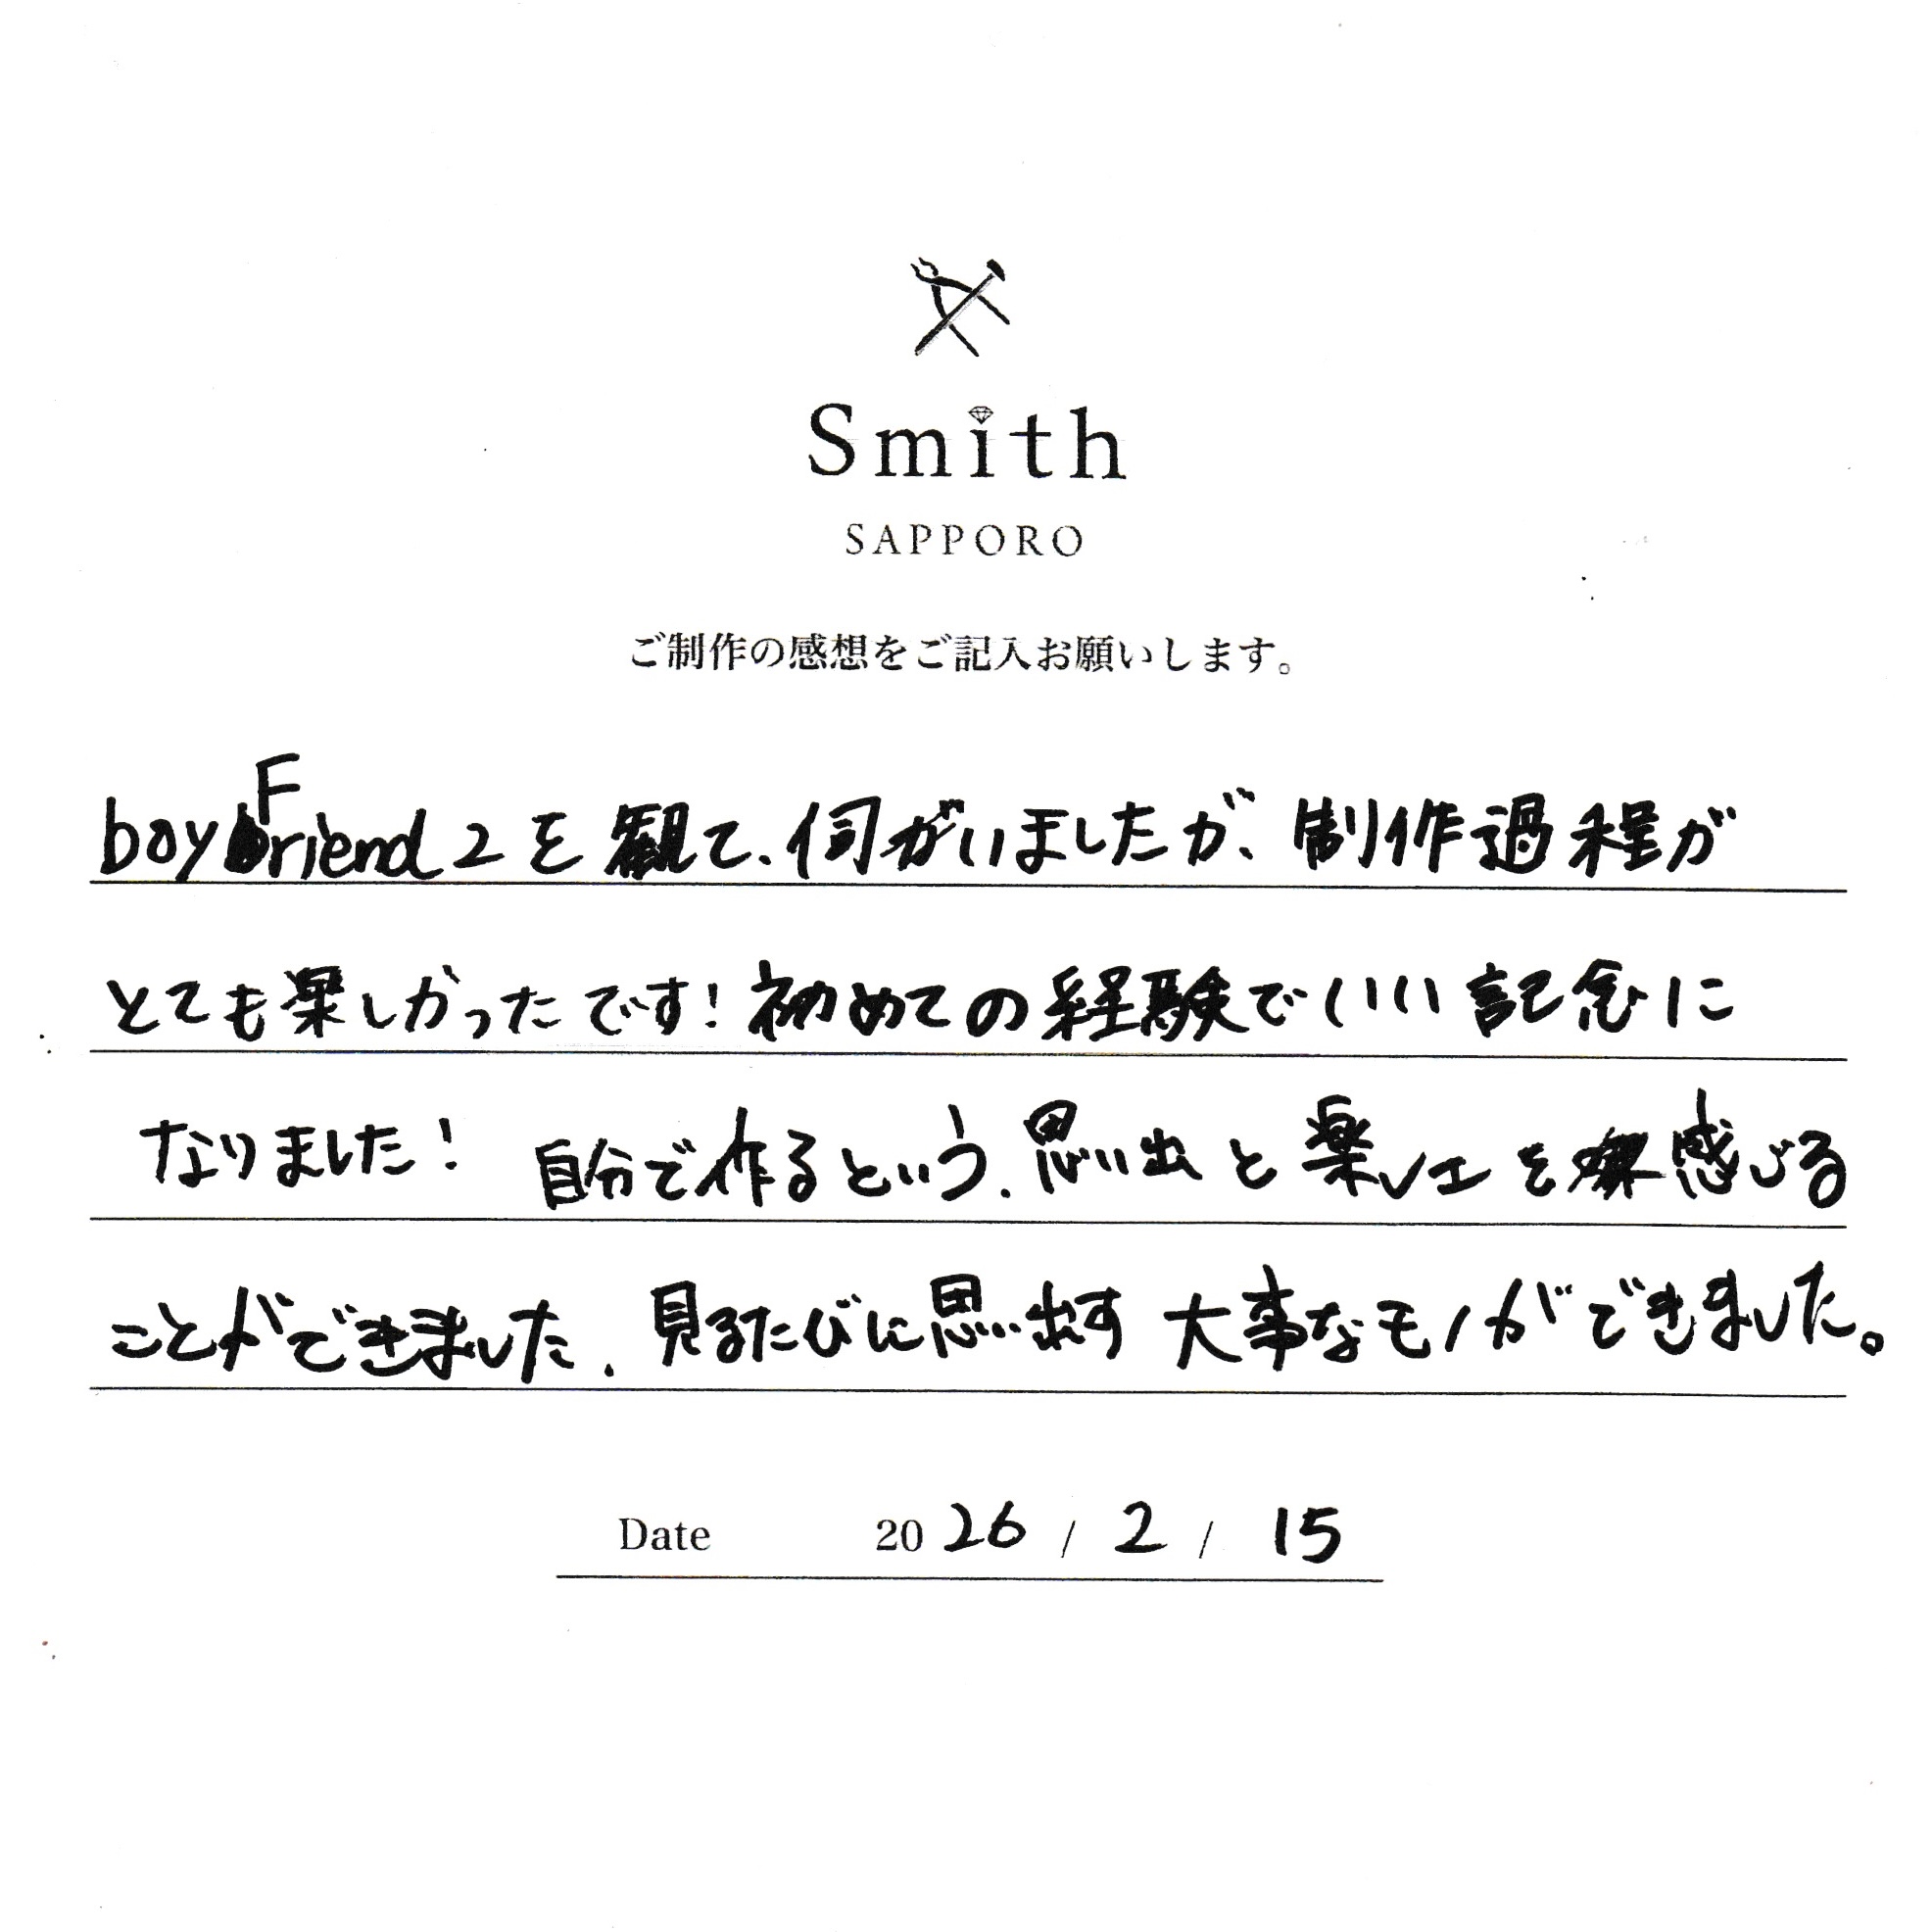 Smith
SAPPORO
ご制作の感想をご記入お願いします。
boyFriend2を観て、伺がいましたが、制作過程が
とても楽しかったです!初めての経験でいい記念に
なりました! 自分で作るという、思い出と楽しエを感じる
ことができました、見るたびに思い出す大事なモノができました。
Date 2026 / 2 / 15